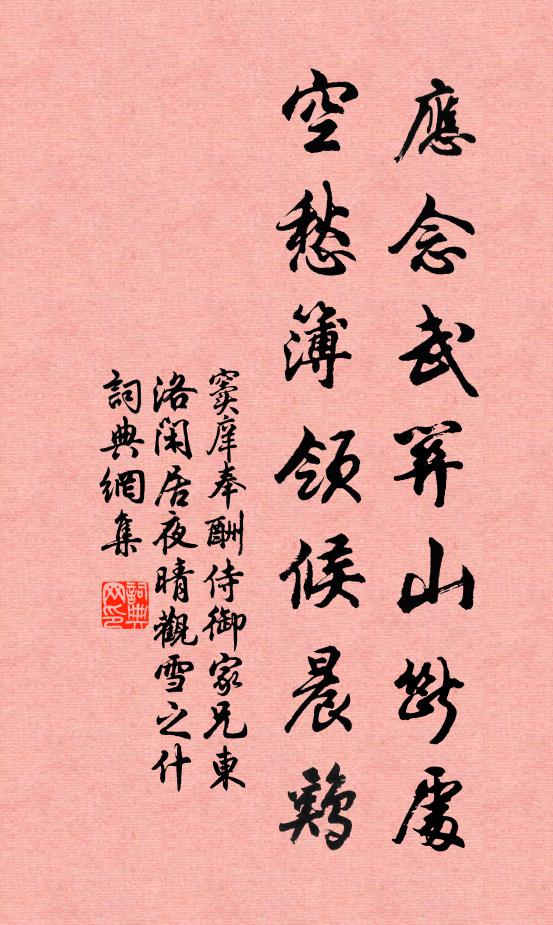 應念武關山斷處
空愁簿領候晨鷄
竇庠奉酬侍御家兄東
洛閑居夜晴觀雪之什
詞典網集
詞典網印